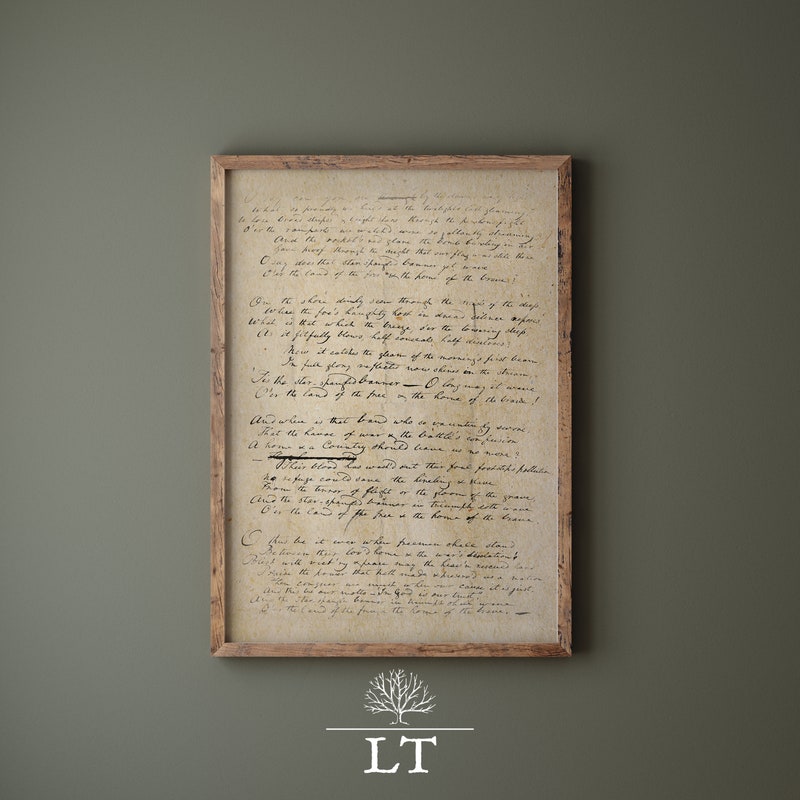 O say can you see by the dawn's early light
What so proudly we hail'd at the twilight's last gleaming,
Whose broad stripes & bright stars through the perilous fight
O'er the ramparts we watch'd, were so gallantly streaming?
And the rocket's red glare, the bomb bursting in air,
Gave proof through the night that our flag was still there
O say does that star-spangled banner yet wave
O'er the land of the free & the home of the brave?
On the shore dimly seen through the mists of the deep,
Where the foe's haughty host in dread silence reposes,
What is that which the breeze, o'er the towering steep,
As it fitfully blows, half conceals, half discloses?
Now it catches the gleam of the morning's first beam,
In full glory reflected now shines in the stream,
'Tis the star-spangled banner — O long may it wave
O'er the land of the free & the home of the brave!
And where is that band who so vauntingly swore,
That the havoc of war & the battle's confusion
A home & a Country should leave us no more?
Their blood has wash'd out their foul footsteps pollution
No refuge could save the hireling & slave
From the terror of flight or the gloom of the grave,
And the star-spangled banner in triumph doth wave
O'er the land of the free & the home of the brave.
O thus be it ever when freemen shall stand
Between their lov'd home & the war's desolation!
Blest with vict'ry & peace may the heav'n rescued land
Praise the power that hath made & preserv'd us a nation!
Then conquer we must, when our cause it is just,
And this be our motto — In God is our trust,
And the star-spangled banner in triumph shall wave
O'er the land of the free & the home of the brave. —
LT